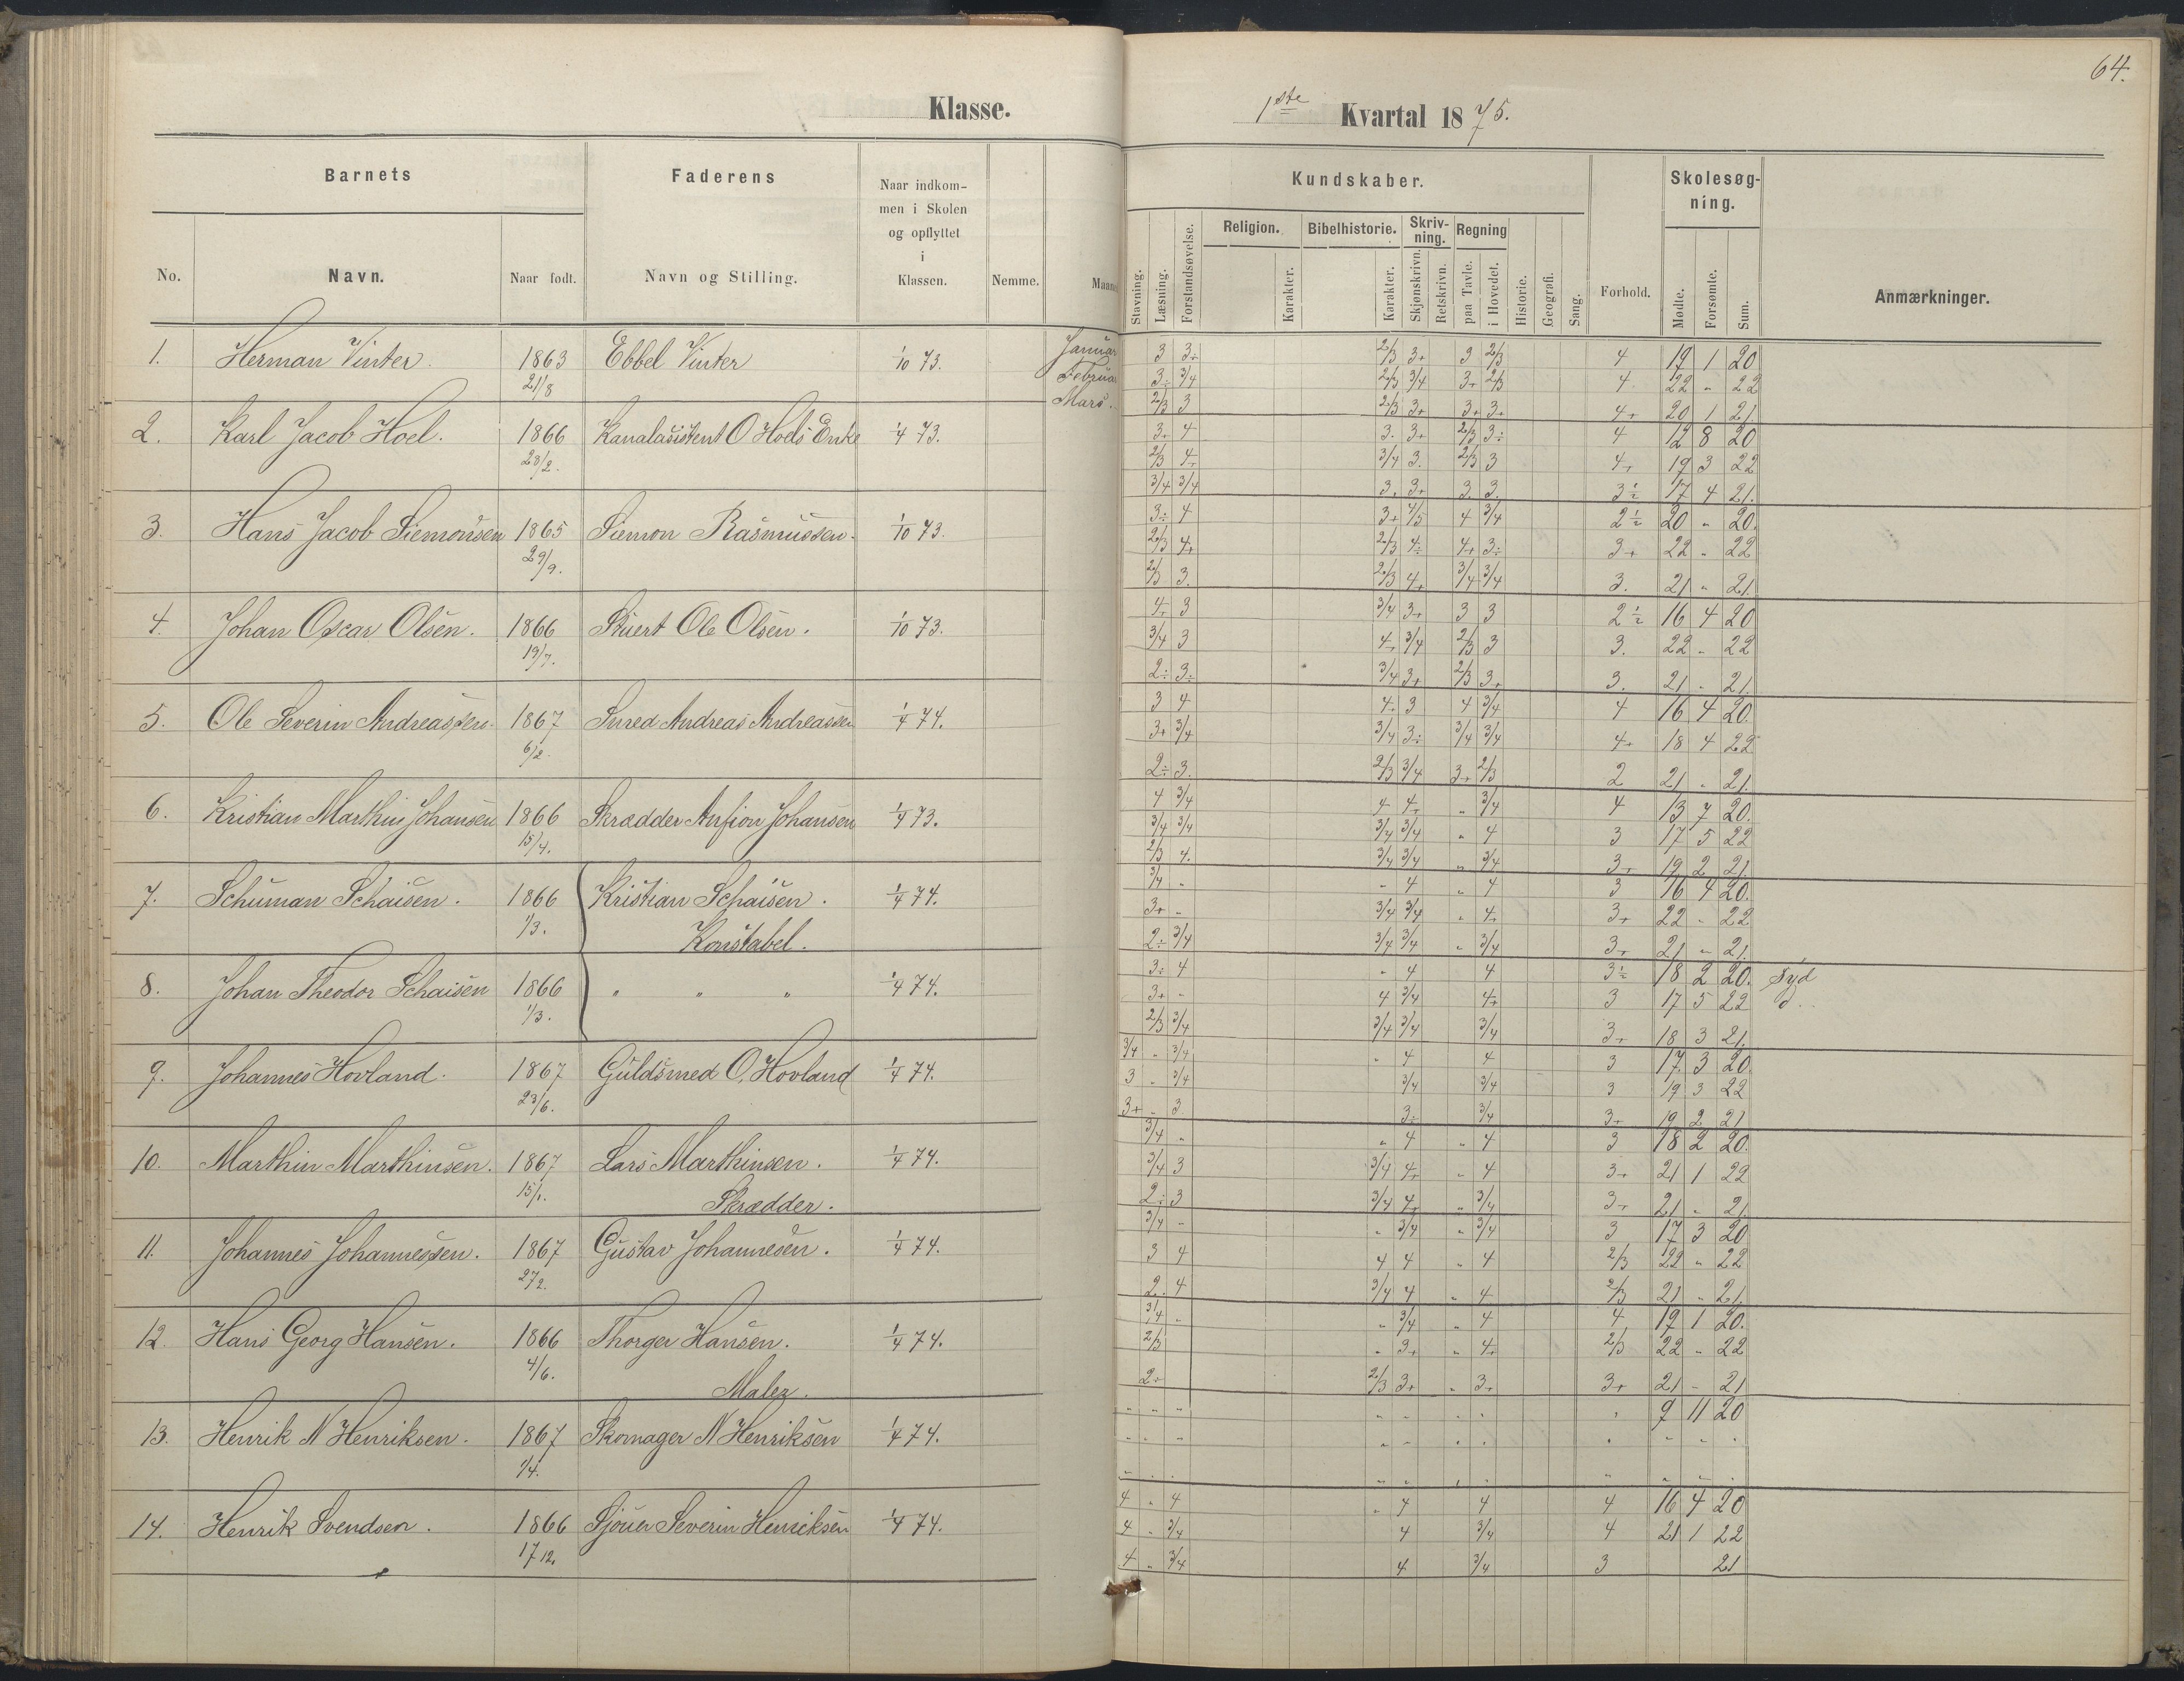 64.
Klasse.
1ste Kvartal 1875.
Barnets
Faderens
Naar indkom-
men i Skolen
og opflyttet
i
Klassen.
No.
Navn.
Naar født.
Navn og Stilling.
Nemme.
Kundskaber.
Skolesøg-
ning.
Religion.
Bibelhistorie.
Skriv-
ning.
Regning
Stavning.
Læsning.
Forstandsøvelse.
Karakter.
Karakter.
Skjønskrivn.
Retskrivn.
paa Tavle.
i Hovedet.
Historie.
Geografi.
Sang.
Forhold.
Mødte.
Forsømte.
Sum.
Anmærkninger.
1. Herman Vinter. 1863 Ebbel Vinter 1/10 73. Januar 3 3÷ 2/3 3+ 3 2/3 4 19 1 20
21/8 Februar 3÷ 3/4 2/3 3/4 3+ 2/3 4 22 " 22
Mars. 2/3 3 2/3 3+ 3+ 3+ 4+ 20 1 21
2. Karl Jacob Hoel. 1866 Kanalasistent O Hoels Enke 1/4 73. 3+ 4 3. 3+ 2/3 3÷ 4 12 8 20
23/2. 2/3 4+ 3/4 3. 2/3 3 4+ 19 3 22
3/4 3/4 3. 3+ 3. 3. 3÷ 17 4 21.
3. Hans Jacob Siemonsen 1865 Siemon Rasmussen. 1/10 73. 3÷ 4 3+ 4/5 4 3/4 2÷ 20 " 20.
29/9. 2/3 4+ 2/3 4÷ 4+ 3÷ 3+ 22 " 22
2/3 3. 2/3 4+ 3/4 3/4 3. 21 " 21.
4. Johan Oscar Olsen. 1866 Stuert Ole Olsen. 1/10 73. 4+ 3 3/4 3+ 3 3 2÷ 16 4 20
19/7. 3/4 3 4+ 3/4 2/3 3 3. 22 " 22
2÷ 3÷ 3/4 3+ 2/3 3+ 3. 21 - 21.
5. Ole Severin Andreassen. 1867 Smed Andreas Andreassen 1/4 74. 3 4 4. 3 4 3/4 4 16 4 20.
6/2. 3+ 3/4 3/4 3÷ 3/4 3/4 4+ 18 4 22
2÷ 3. 2/3 3/4 3+ 2/3 2 21 " 21.
6. Kristian Marthin Johansen 1866 Skrædder Anfion Johansen 1/4 73. 4 3/4 4 4+ " 3/4 4 13 7 20.
15/4. 3/4 3/4 3/4 3/4 " 4 3 17 5 22
2/3 4. 3/4 3/4 " 3/4 3+ 19 2 21
7. Schuman Schaisen. 1866 Kristian Schaisen. 1/4 74. 3/4 " " 4 " 4 3 16 4 20.
1/3. Konstabel. 3+ " 3/4 3/4 " 4+ 3+ 22 " 22
2÷ 3/4 3/4 3/4 " 3/4 3+ 21 - 21.
8. Johan Theodor Schaisen 1866 " " " 1/4 74. 3÷ 4 " 4 4 3÷ 18 2 20. Syd
1/3. 3+ " 4 3/4 4+ 3 17 5 22 d.
2/3 3/4 3/4 3/4 3/4 3+ 18 3 21.
9. Johannes Hovland. 1867 Guldsmed O. Hovland 1/4 74. 3/4 " 3/4 " 4 4 3 17. 3 20.
23/6. 3 " 3/4 3/4 3/4 3 19 3 22
3+ " 3 3÷ 3/4 3+ 19 2 21
10. Marthin Marthinsen. 1867 Lars Marthinsen. 1/4 74. 3/4 " " 4 " 4 3 18 2 20.
15/1. Skrædder. 3/4 3 3/4 4+ " 4 3+ 21 1 22
2÷ 3 3/4 4+ " 3/4 3+ 21 - 21
11. Johannes Johannessen. 1867 Gustav Johannesen. 1/4 74. 3/4 - " 3/4 " 3/4 3 17 3 20
27/2. 3 4 4 4 " 4 2/3 22 " 22
2. 4 3/4 4 " 4 2/3 21 " 21.
12. Hans Georg Hansen. 1866 Thorger Hansen. 1/4 74. 3/4 - " 3/4 " 4 4 19 1 20.
4/6. Maler. 2/3 " 3+ " 4+ 2/3 22 " 22
2+ 2/3 3+ " 3+ 3+ 21 - 21
13. Henrik N Henriksen. 1867 Skomager N Henriksen 1/4 74. " " " " " " " " 9 11 20
1/4. " " " " " " " " " " "
" " " " " " " " " " "
14. Henrik Svendsen. 1866 Sjouer Severin Henriksen 1/4 74. 4 " 4 " 4 4 4 16 4 20
17 12. 4 " 3/4 4 3/4 4 21 1 22
4 " 3/4 4 3/4 3 21